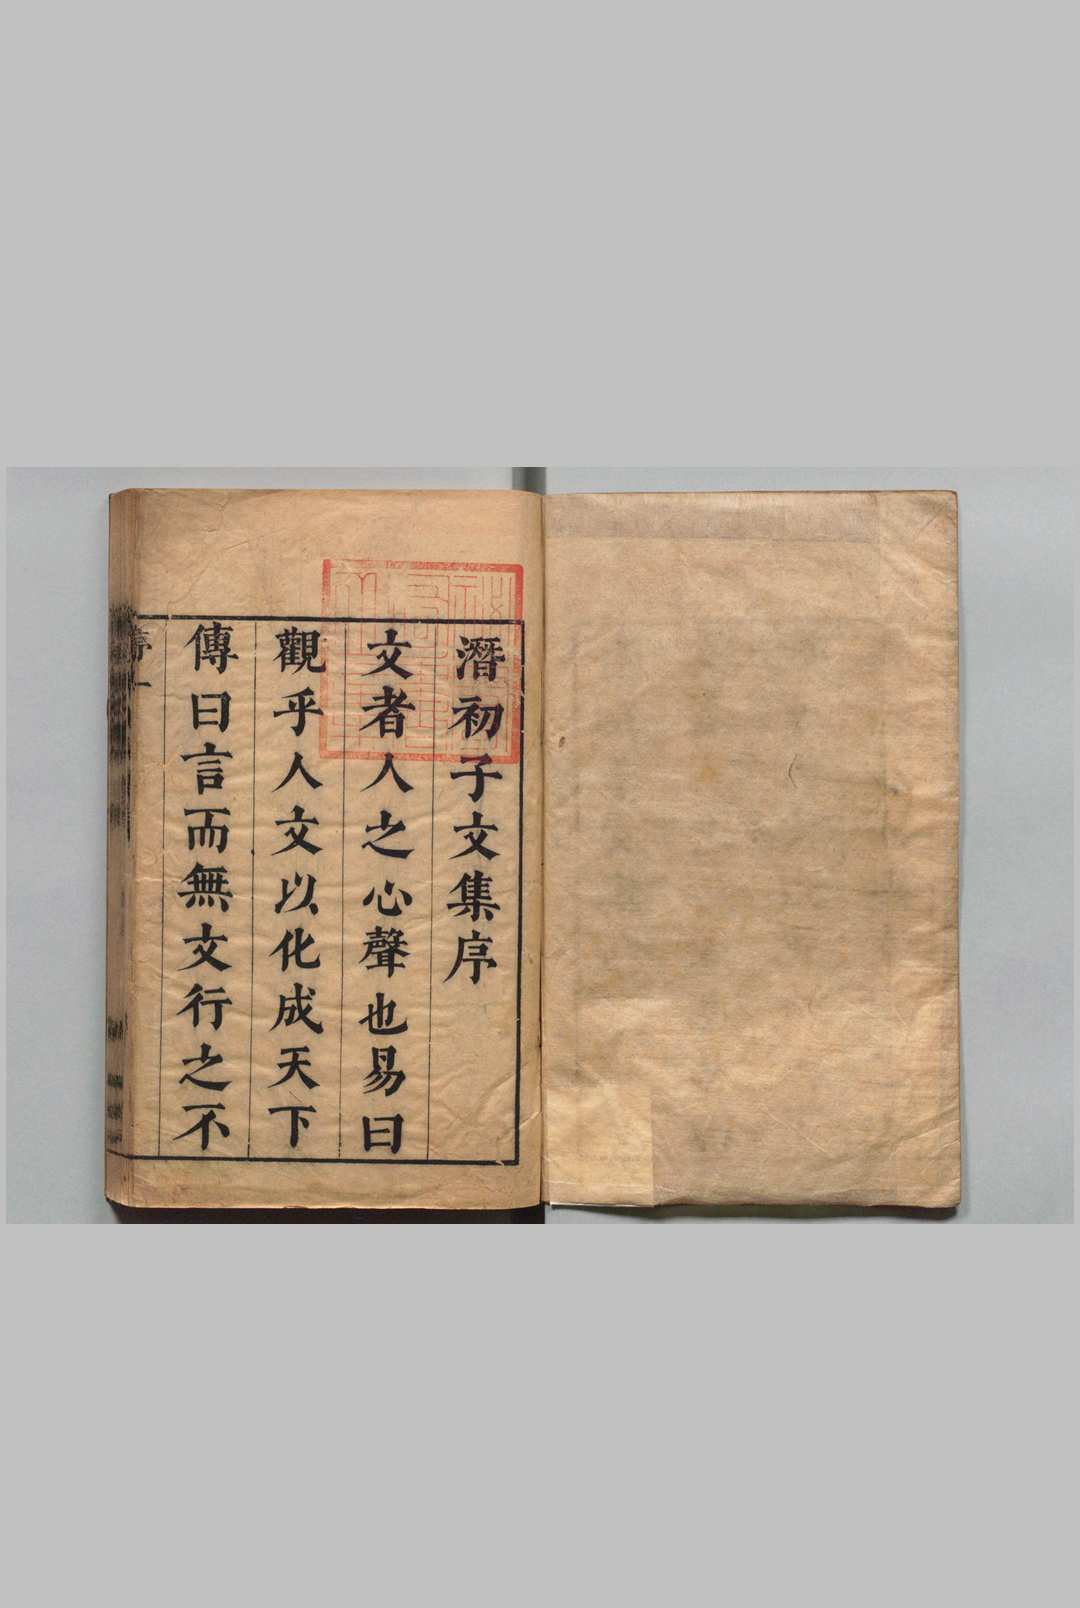 潛初子文集序
文者人之心聲也易曰
觀乎人文以化成天下
傳曰言而無文行之不
序 一